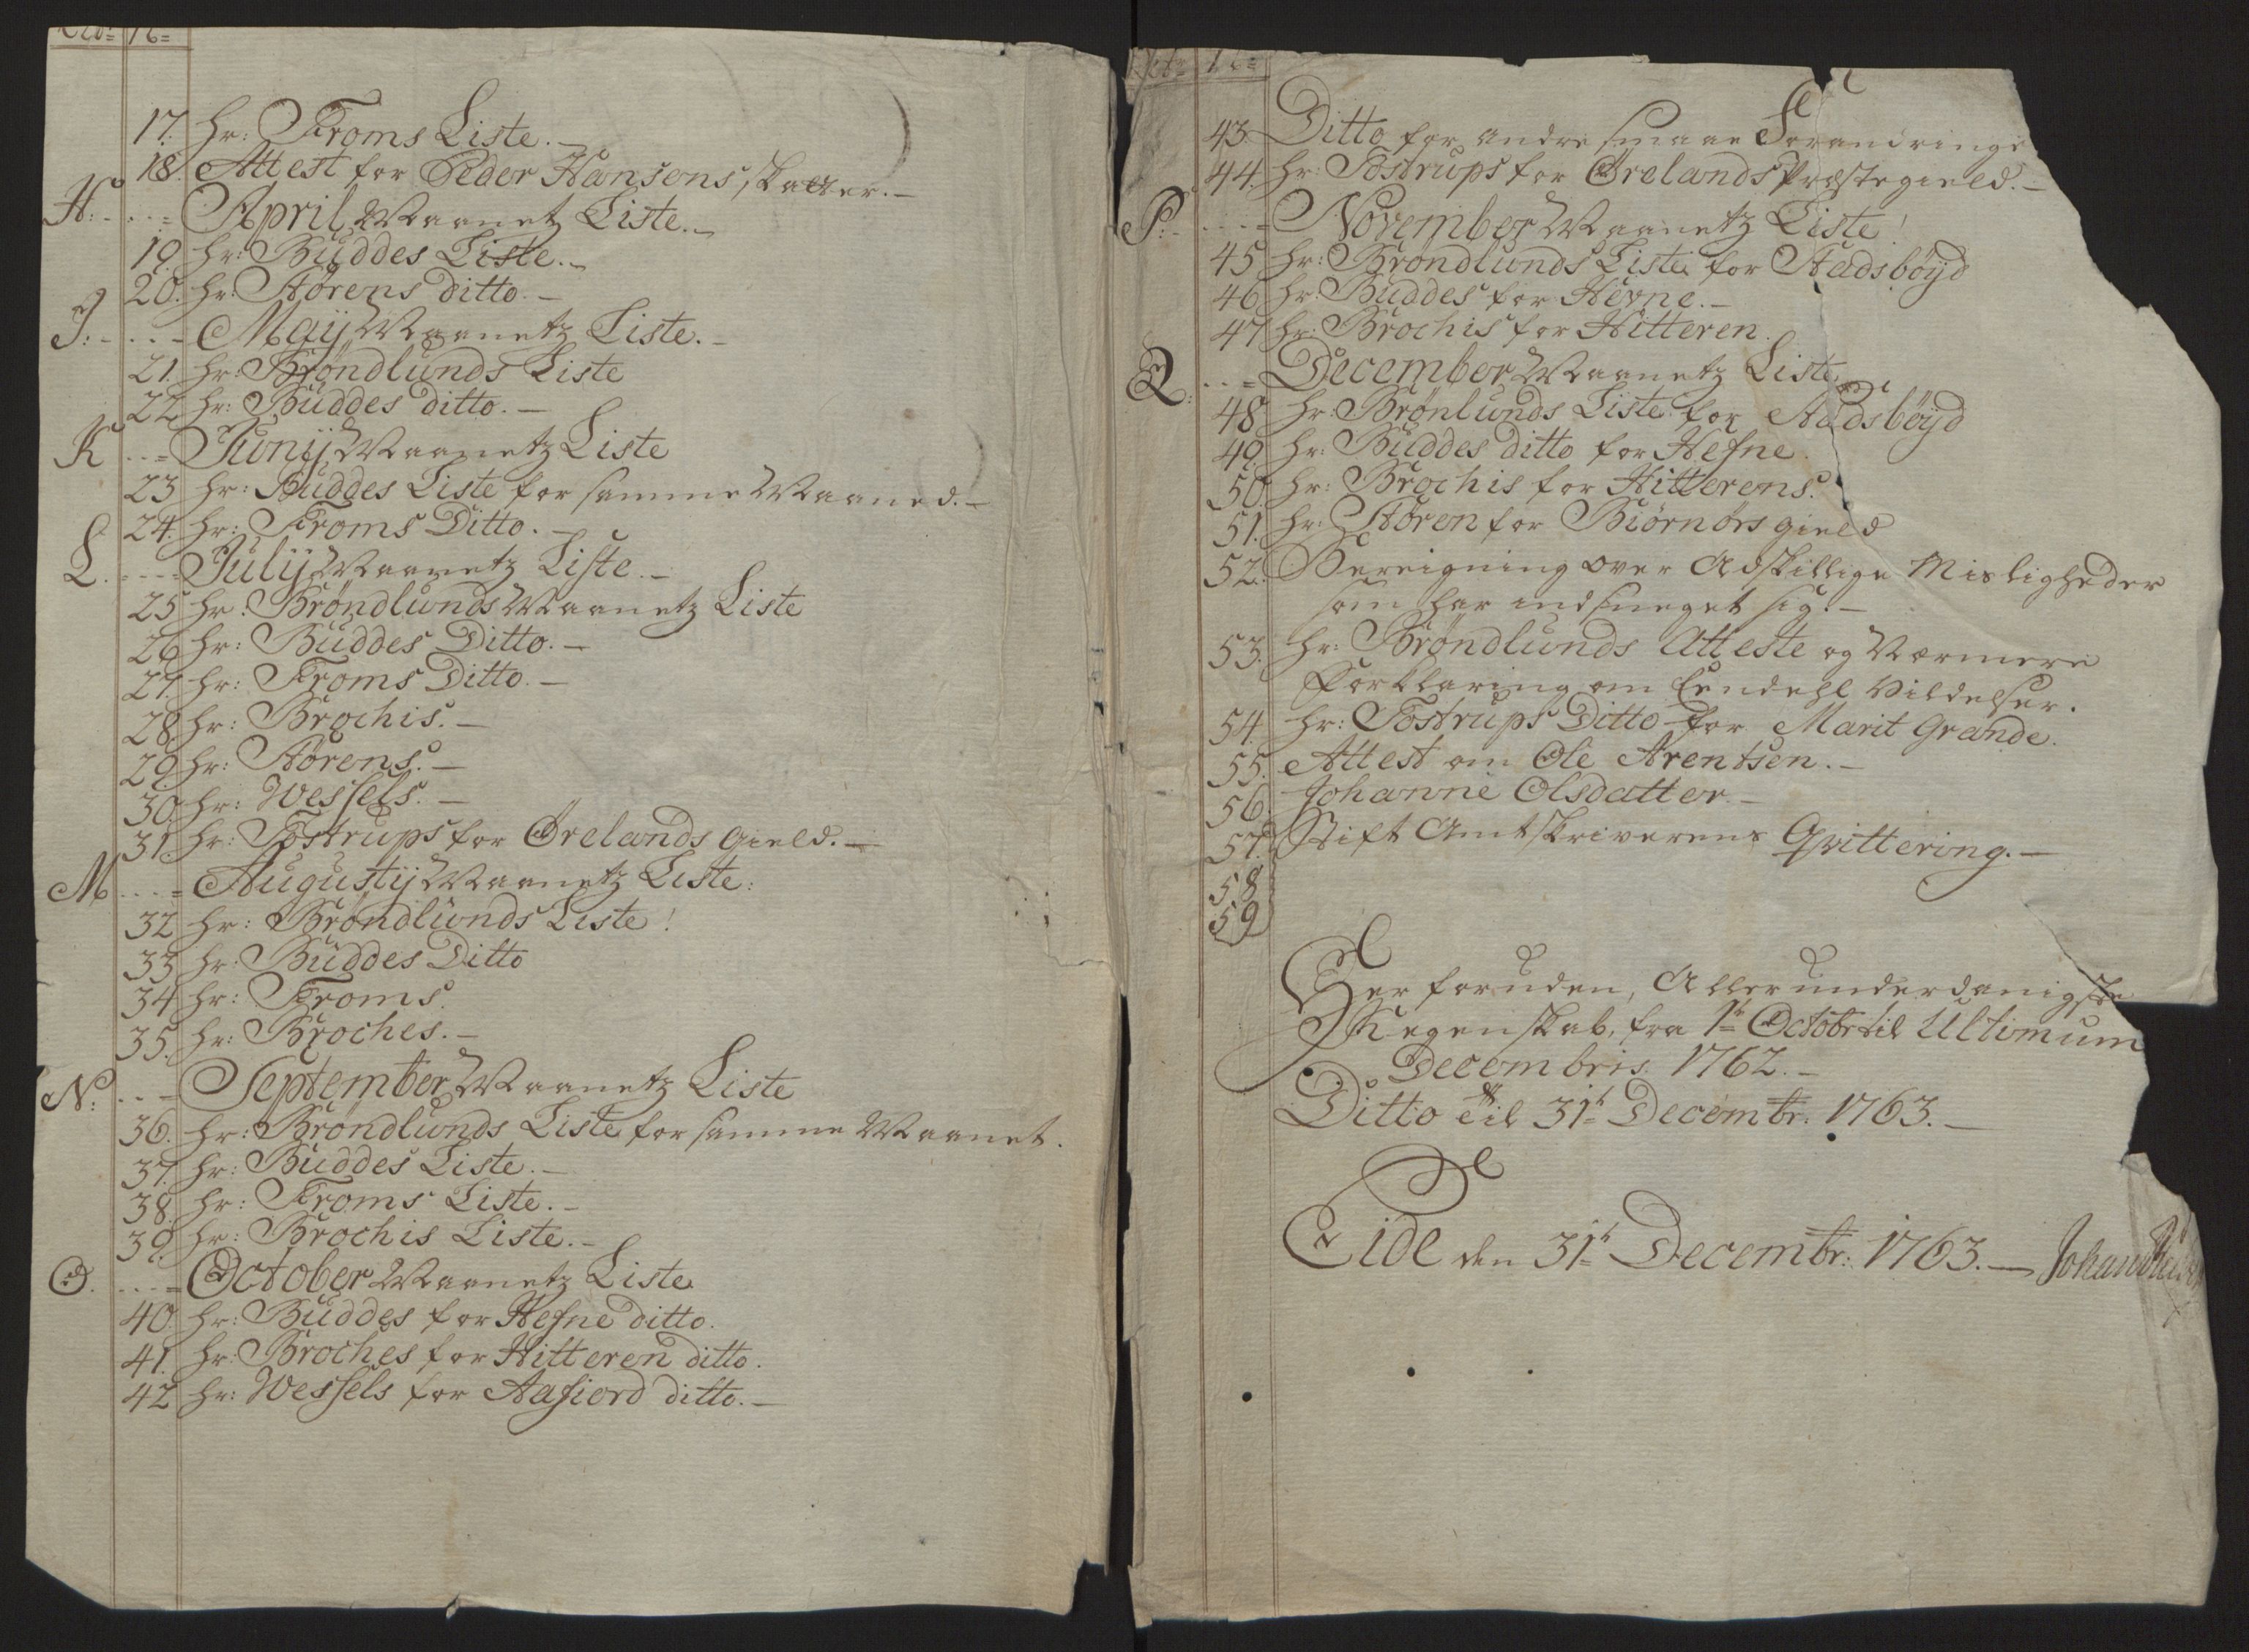 17. hr: Froms Liste.
18. Attest for Peder Hansens skatter.
H: April Maanetz Liste.
19. hr: Buddes Liste.
20. hr: Størens ditto.
J: Maij Maanetz Liste.
21. hr: Brøndlunds Liste
22. hr: Buddes ditto.
K Junij Maanetz Liste
23 hr: Buddes Liste for samme Maaned.
24. hr: Froms Ditto.
L. Julij Maanetz Liste.
25 hr: Brøndlunds Maanetz Liste
26 hr: Buddes Ditto.
27. hr: Froms Ditto.
28. hr: Brochis.
29. hr: Störens.
30. hr: Wessels.
31 hr: Tostrups for Ørelands Gield.
M Augustij Maanetz Liste:
32 hr: Brøndlunds Liste
33 hr: Buddes Ditto
34 hr: Froms.
35. hr: Broches.
N: September Maanetz Liste
36. hr: Brøndlunds Liste for samme Maanet.
37. hr: Buddes Liste.
38. hr: Froms Liste.
39. hr: Brochis Liste.
O. October Maanetz Liste
40. hr: Buddes for Hefne ditto.
41. hr: Broches for Hitteren ditto.
42 hr: Wessels for Aafiord ditto.
43. Ditto for andre smaae Forandringe
44. hr: Tostrups for Ørelands Præstegield.
P: November Maanetz Liste
45 hr: Brøndlunds Liste for Stadsbøyd
46 hr: Buddes for Hevne.
47 hr: Brochis for Hitteren.
Q: December Maanetz Liste
48 hr: Brønlunds Liste for Stadsbøyd
49. hr: Buddes ditto for Hefne.
50. hr: Brochis for Hitterens.
51. hr: Stören for Biørnørs gield
52. Bereigning over Adskillige Misligheder
som har indsneget sig.
53. hr: Brøndlunds Atteste og Nærmere
Forklaring om Eendehl Vildelser.
54. hr: Tostrups Ditto for Marit Grande.
55. Attest om Ole Arentsen.
56. Johanne Olsdatter.
57. Stift Amtskriverens Qvittering.
58
59
Her foruden, Allerunderdanigste
Regenskab, fra 1te Octobr til Ultimum
Decembris 1762.
Ditto til 31te Decembr: 1763.
Eide den 31te Decembr: 1763. Johan